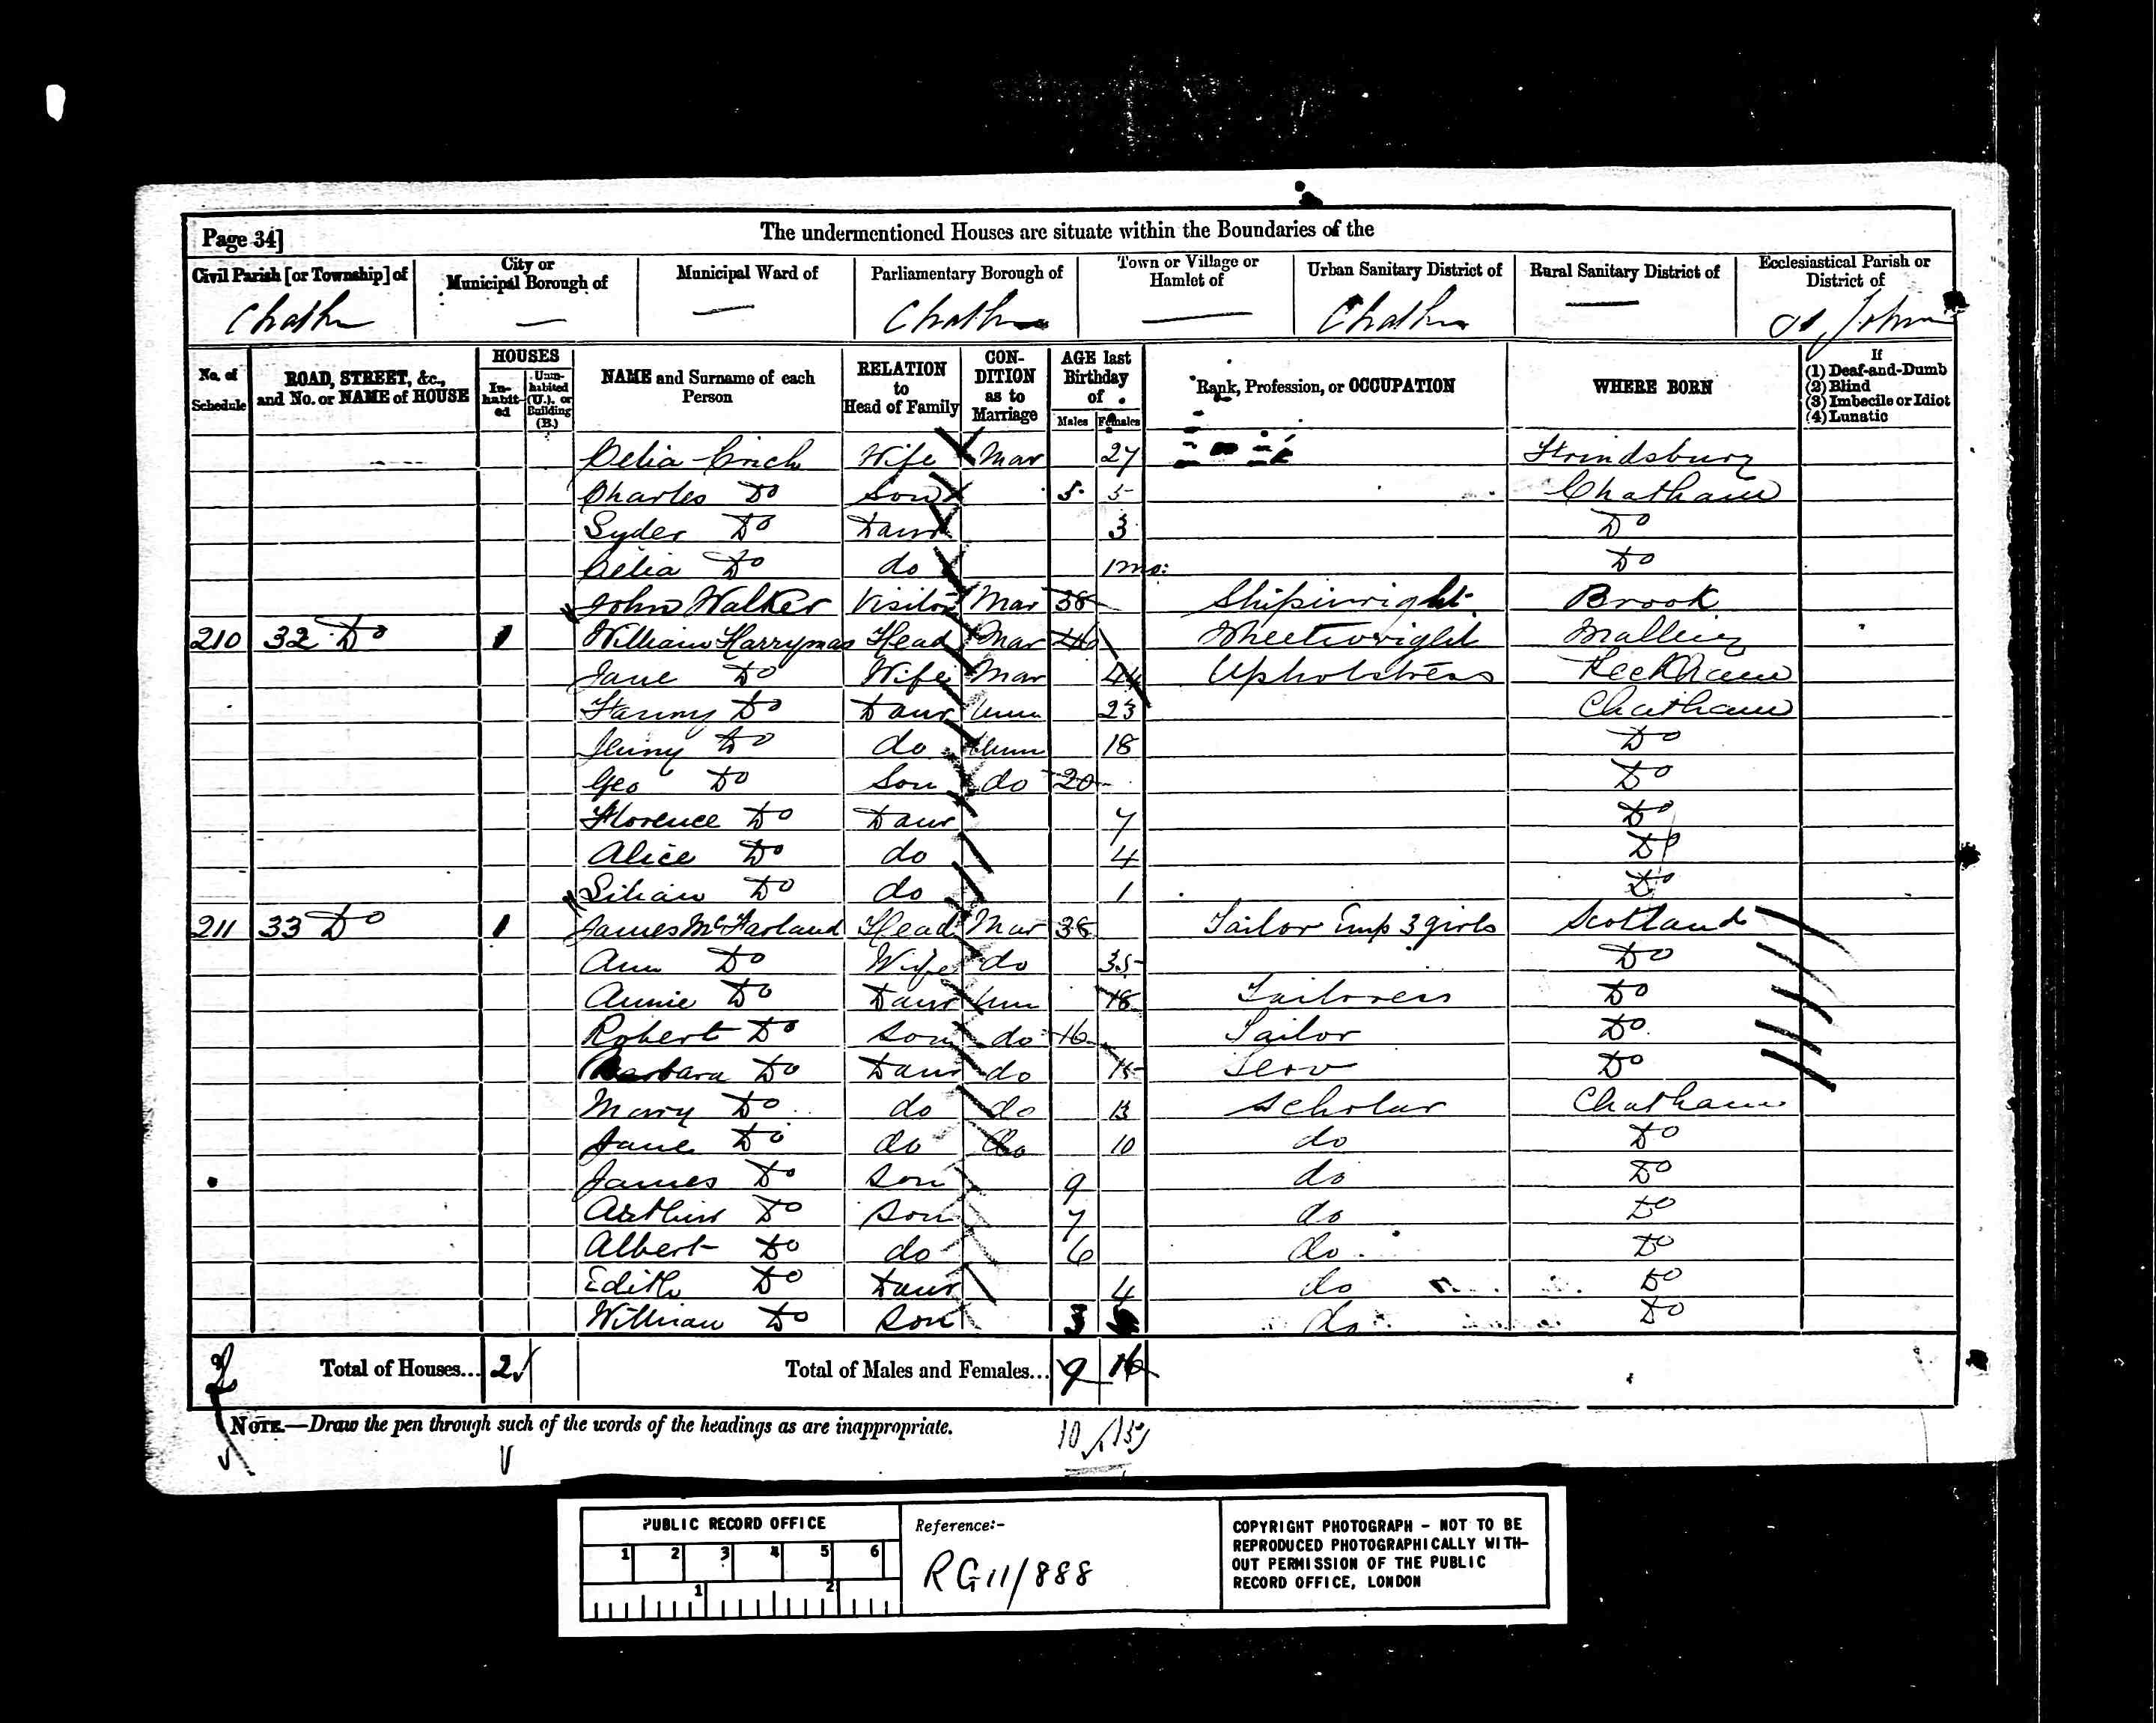 Page 34]
The undermentioned Houses are situate within the Boundaries of the
Civil Parish [or Township] of
City or Municipal Borough of
Municipal Ward of
Parliamentary Borough of
Town or Village or Hamlet of
Urban Sanitary District of
Rural Sanitary District of
Ecclesiastical Parish or District of
Chathm — — Chathm — Chathm — St John
No. of Schedule
ROAD, STREET, &c., and No. or NAME of HOUSE
HOUSES
In-habit-ed
Unin-habited (U.), or Building (B.)
NAME and Surname of each Person
RELATION to Head of Family
CON-DITION as to Marriage
AGE last Birthday of
Males Females
Rank, Profession, or OCCUPATION
WHERE BORN
If
(1) Deaf-and-Dumb
(2) Blind
(3) Imbecile or Idiot
(4) Lunatic
Celia Wife Mar 27 Frindsbury
Charles Do Son 5 5 Chatham
Syder Do Daur 3 Do
Celia Do do 1 mo: Do
John Walker Visitor Mar 38 Shipwright Brook
210 32 Do 1 William Harryman Head Mar 46 Wheelwright Malling
Jane Do Wife Mar 44 Upholstress Peckham
Fanny Do Daur Unm 23 Chatham
Jenny Do do Unm 18 Do
Geo Do Son do 20 Do
Florence Do Daur 7 Do
Alice Do do 4 Do
Lilian Do do 1 Do
211 33 Do 1 James McFarland Head Mar 38 Tailor Emp 3 girls Scotland
Ann Do Wife do 35 Do
Annie Do Daur Unm 18 Tailoress Do
Robert Do Son do 16 Tailor Do
Barbara Do Daur do 15 Serv Do
Mary Do do do 13 Scholar Chatham
Jane Do do do 10 do Do
James Do Son 9 do Do
Arthur Do Son 7 do Do
Albert Do do 6 do Do
Edith Do Daur 4 do Do
William Do Son 3 do Do
Total of Houses... 2
Total of Males and Females... 9 16
NOTE.—Draw the pen through such of the words of the headings as are inappropriate.
10 / 15
PUBLIC RECORD OFFICE
1 2 3 4 5 6
1 2
Reference:-
RG11/888
COPYRIGHT PHOTOGRAPH - NOT TO BE
REPRODUCED PHOTOGRAPHICALLY WITH-
OUT PERMISSION OF THE PUBLIC
RECORD OFFICE, LONDON